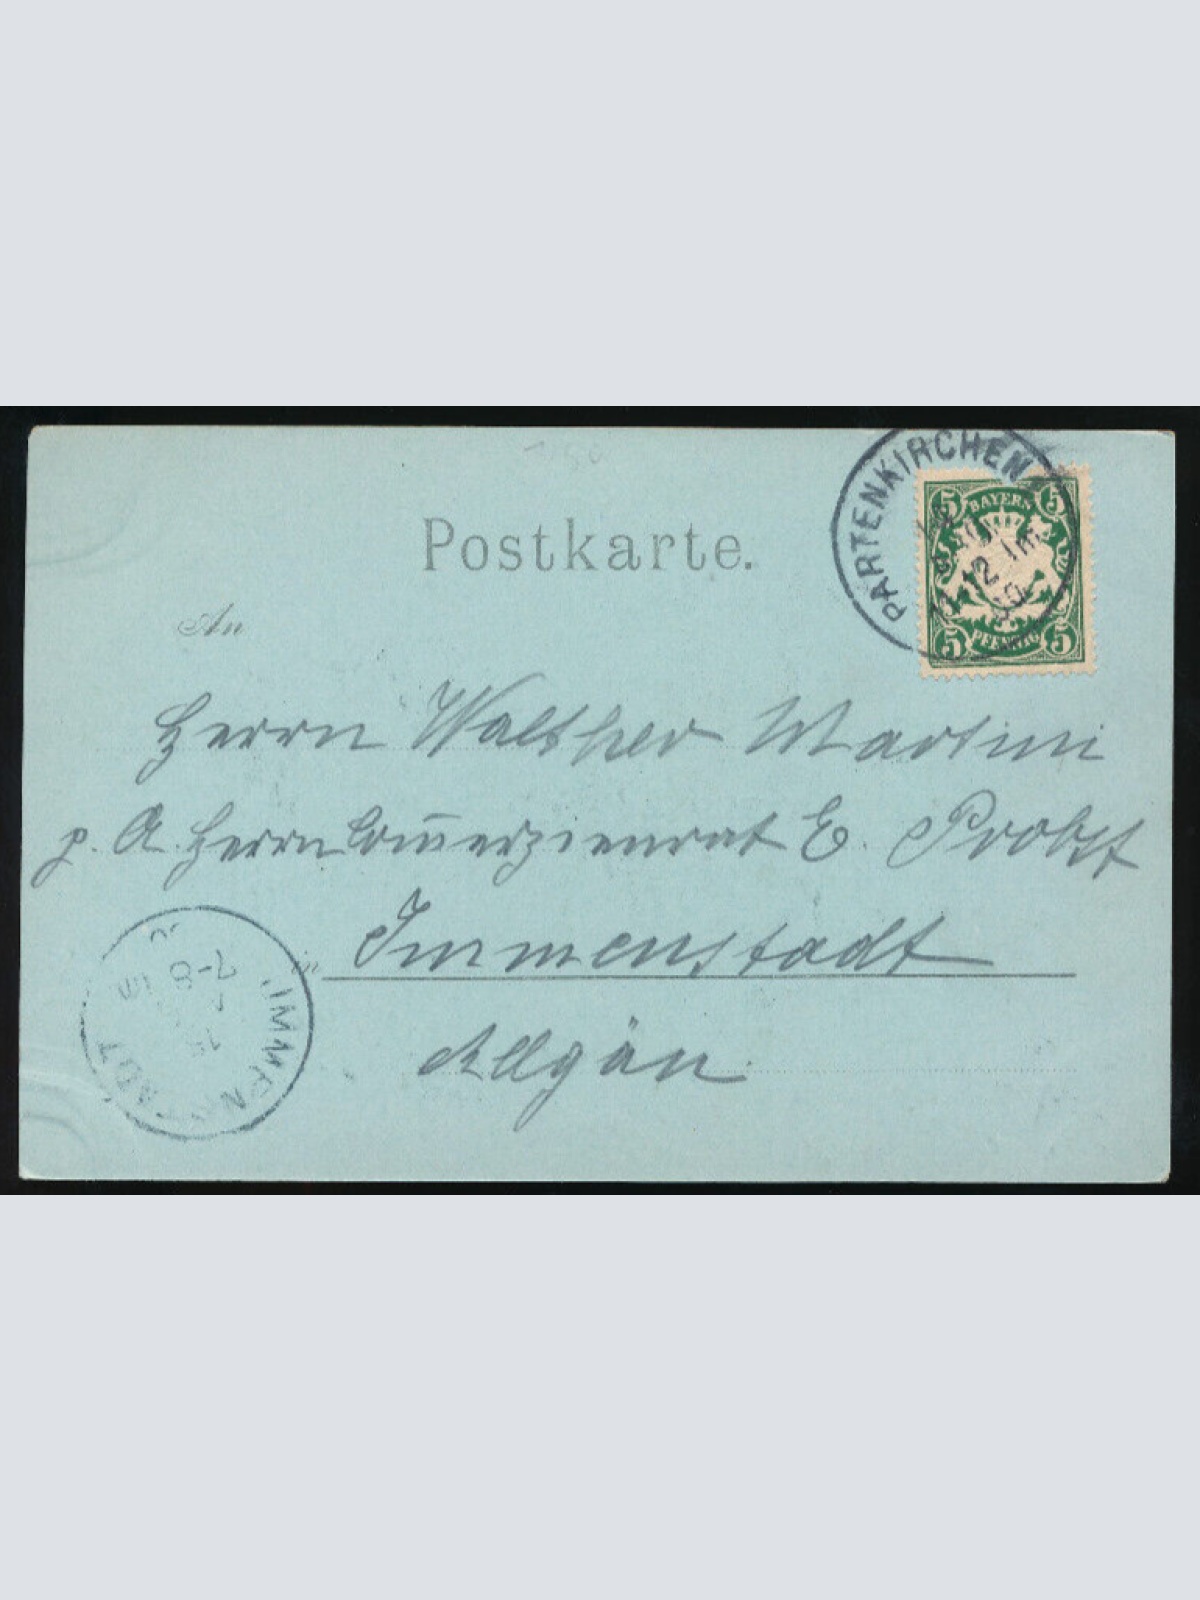 Postkarte.
PARTENKIRCHEN
5 BAYERN 5
12
5 PFENNIG 5
An
Herrn Walther Martini
p. A. Herrn Com̅erzienrat E. Probst
in Immenstadt
Allgäu
IMMENSTADT
7-8